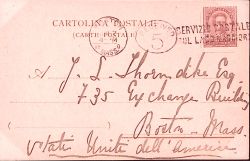 CARTOLINA POSTALE
(CARTE POSTALE)
5
SERVIZIO POSTALE
SUL LAGO MAGGIORE
A
J. L. Thorndike Esq
735 Exchange Building
Boston - Mass
Stati Uniti dell'America